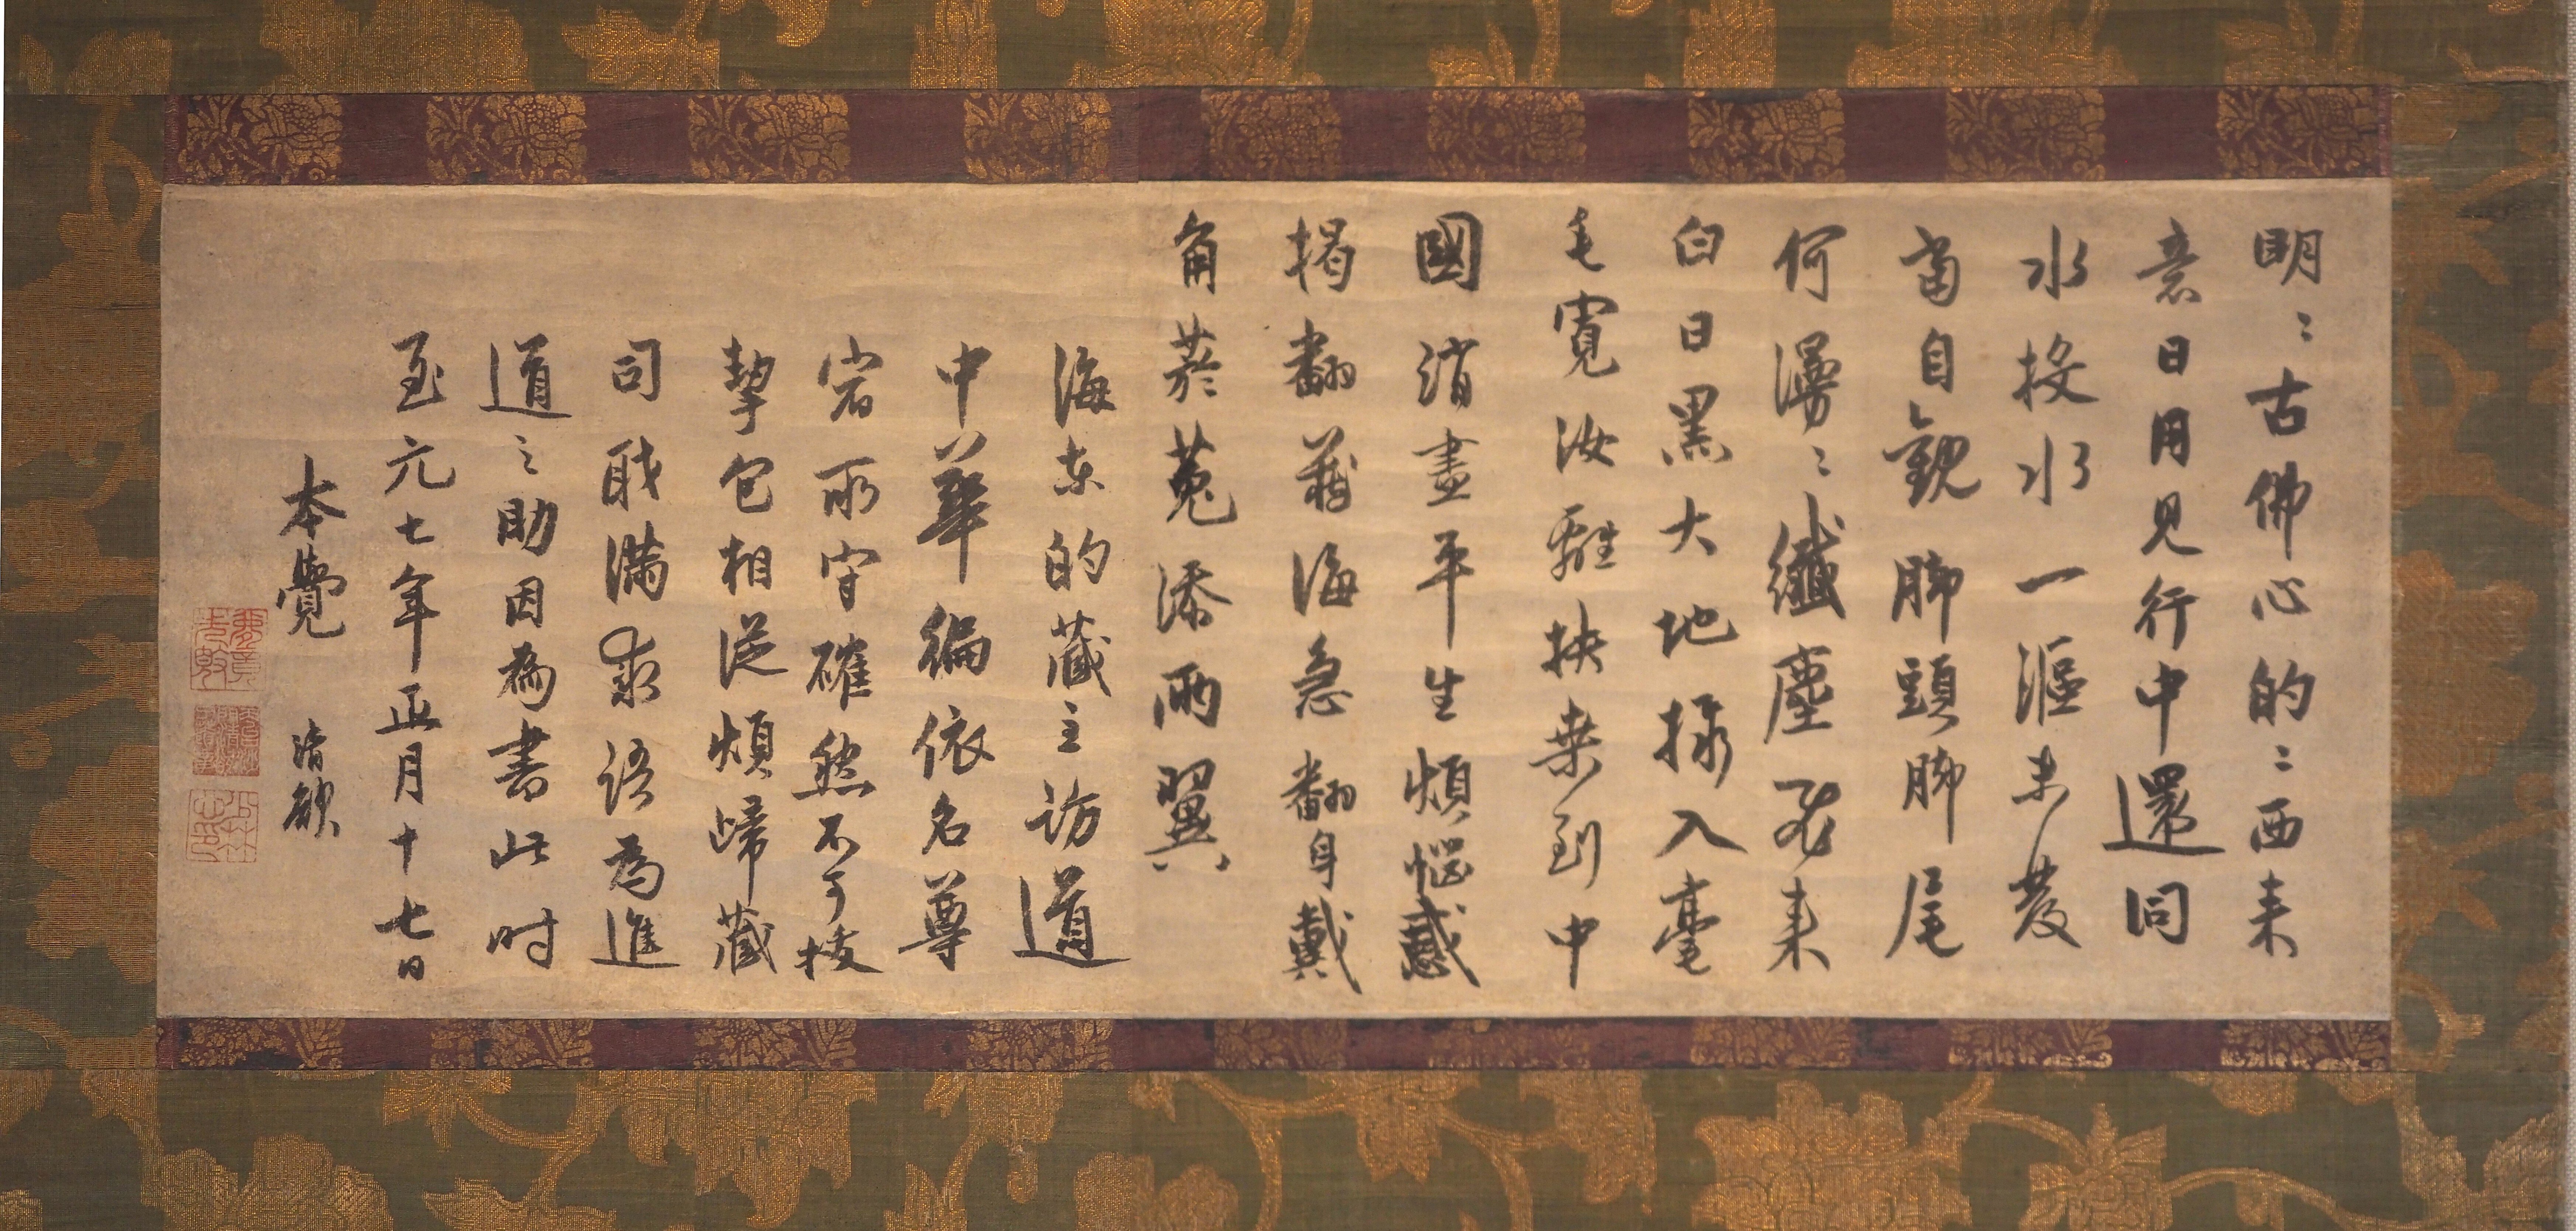 明〻古佛心的〻西来
意日用見行中還同
水投水一漚未發
當自觀脚頭脚尾
何漫〻纖塵飛来
白日黑大地掇入毫
毛寬汝離扶桒到中
國消盡平生煩惱惑
掲翻藏海急翻身戴
角菸菟添兩翼
海東的藏主訪道
中華徧依名尊
宿所守確然不可拔
挈包相從煩歸藏
司職滿求語為進
道之助因為書此时
至元七年正月十七日
本覺 清欲